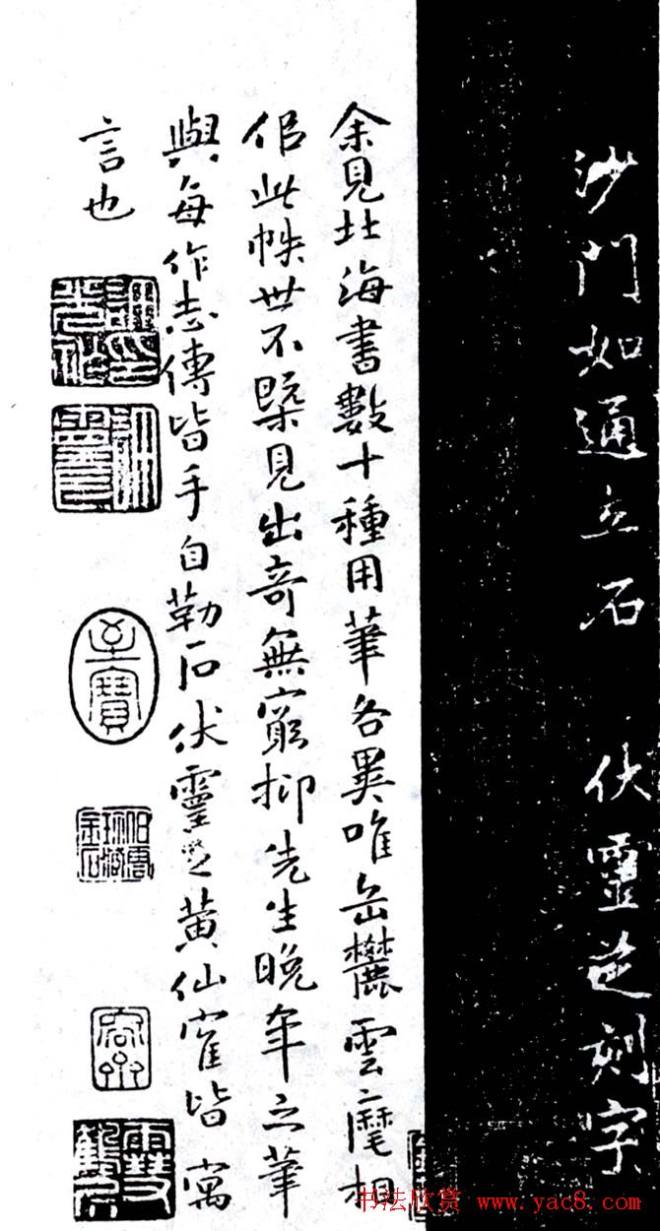 沙門如通立石 伏靈芝刻字
余見北海書數十種用筆各異唯岳麓雲麾相
佀此帙世不槩見出奇無窮抑先生晚年之筆
與每作志傳皆手自勒石伏靈芝黃仙寉皆寓
言也
至寶
书法欣赏 www.yac8.com